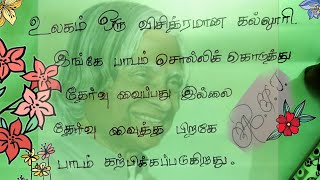 உலகம் ஒரு விசித்திரமான கல்லூரி.
இங்கே பாடம் சொல்லிக் கொடுத்து
தேர்வு வைப்பது இல்லை
தேர்வு வைத்த பிறகே
பாடம் கற்பிக்கப்படுகிறது.